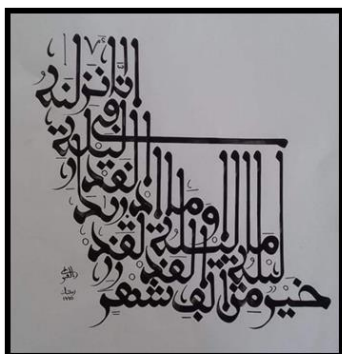 إنا انزلنه
في
ليلة
القدر
وما ادريك
ما ليلة القدر
ليلة القدر
خير من الف شهر